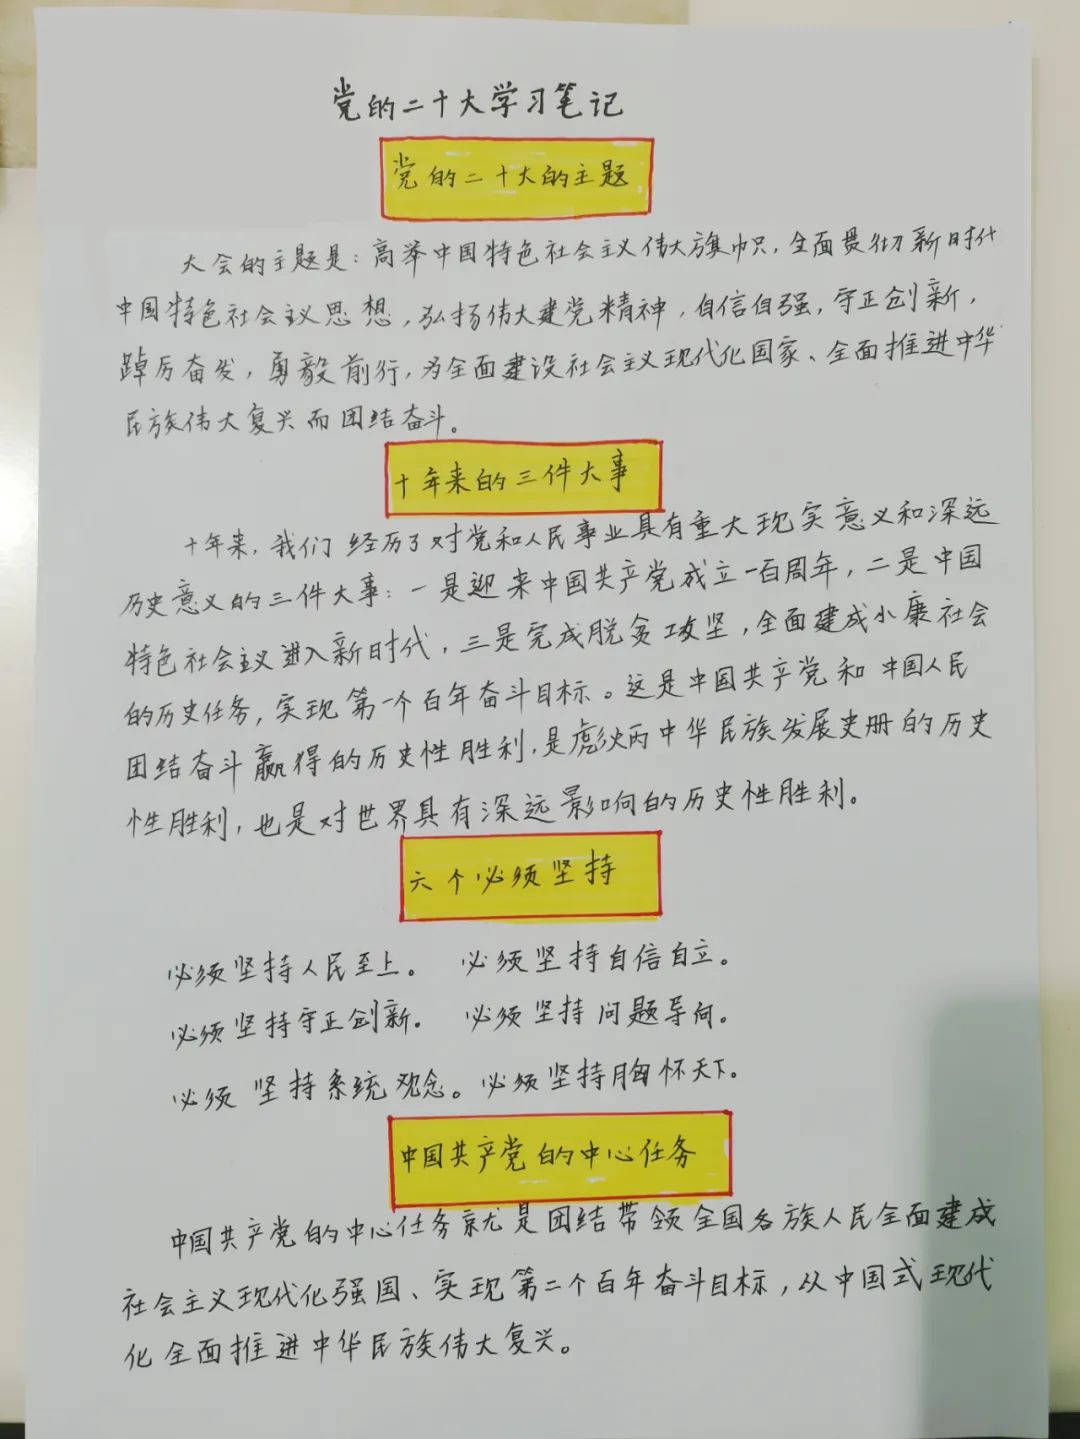 党的二十大学习笔记
党的二十大的主题
大会的主题是：高举中国特色社会主义伟大旗帜，全面贯彻新时代
中国特色社会主义思想，弘扬伟大建党精神，自信自强，守正创新，
踔厉奋发，勇毅前行，为全面建设社会主义现代化国家、全面推进中华
民族伟大复兴而团结奋斗。
十年来的三件大事
十年来，我们经历了对党和人民事业具有重大现实意义和深远
历史意义的三件大事：一是迎来中国共产党成立一百周年，二是中国
特色社会主义进入新时代，三是完成脱贫攻坚，全面建成小康社会
的历史任务，实现第一个百年奋斗目标。这是中国共产党和中国人民
团结奋斗赢得的历史性胜利，是彪炳中华民族发展史册的历史
性胜利，也是对世界具有深远影响的历史性胜利。
六个必须坚持
必须坚持人民至上。 必须坚持自信自立。
必须坚持守正创新。 必须坚持问题导向。
必须坚持系统观念。必须坚持胸怀天下。
中国共产党的中心任务
中国共产党的中心任务就是团结带领全国各族人民全面建成
社会主义现代化强国、实现第二个百年奋斗目标，从中国式现代
化全面推进中华民族伟大复兴。